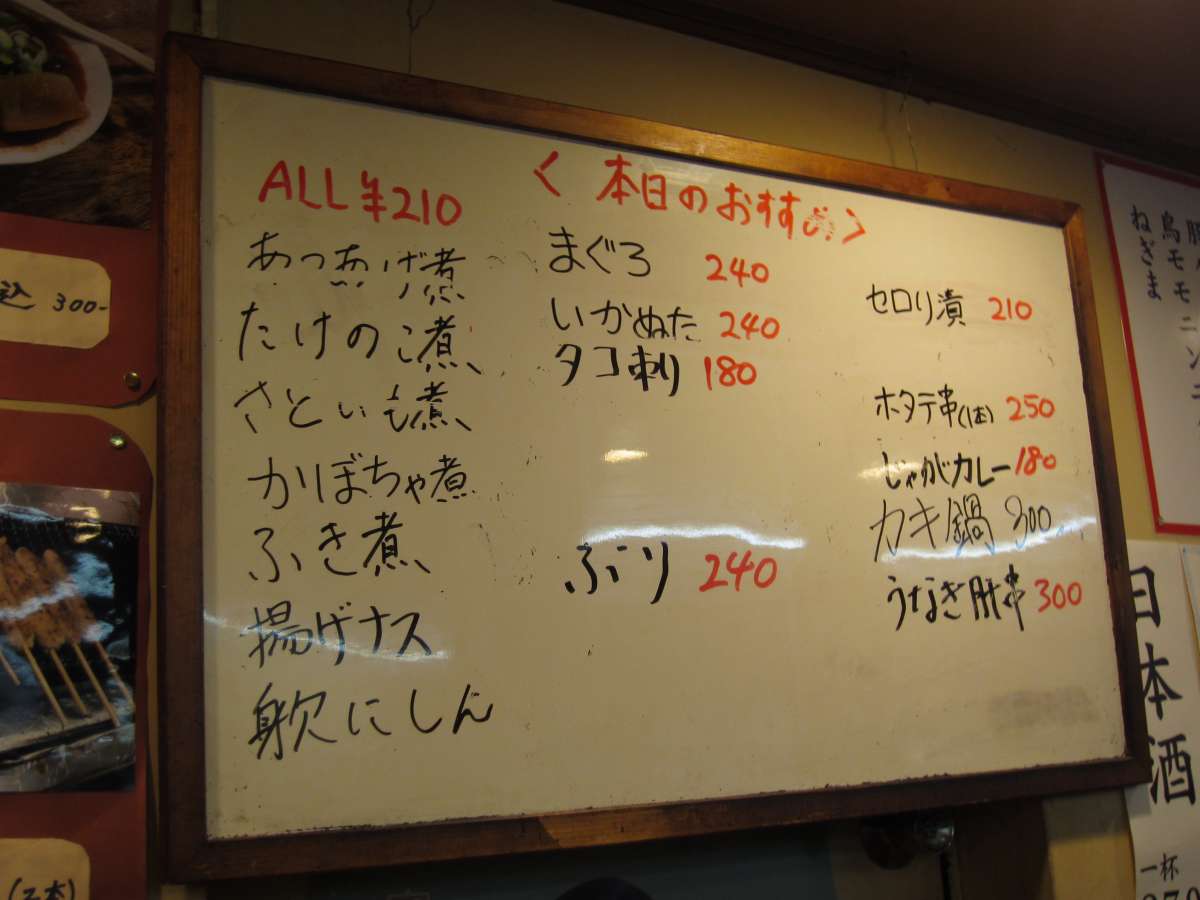 〈 本日のおすすめ 〉
ALL ¥210
あつあげ煮
たけのこ煮
さといも煮
かぼちゃ煮
ふき煮
揚げナス
身欠にしん
まぐろ 240
いかぬた 240
タコ刺り 180
ぶり 240
セロリ漬 210
ホタテ串(1本) 250
じゃがカレー 180
カキ鍋 300
うなぎ肝串 300
込 300-
(2本)
鳥モモニン
ねぎま
日本酒
一杯